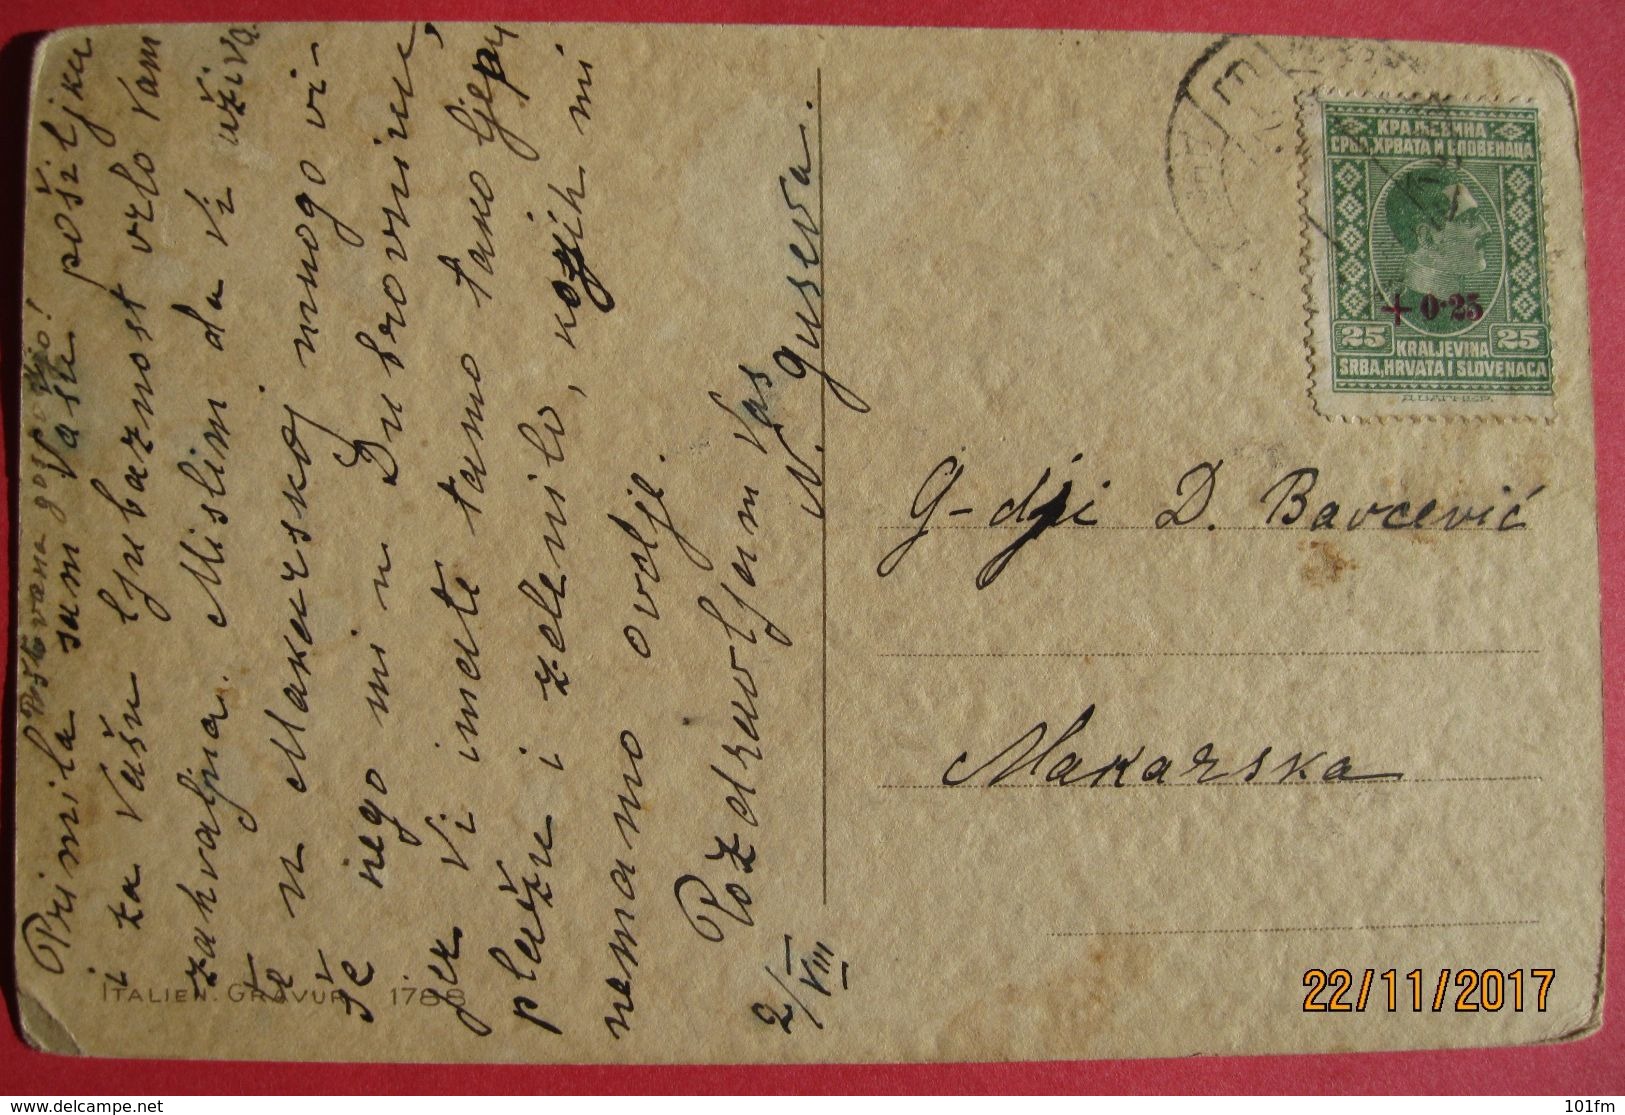 Poštovana gospođo!
Primila sam Vašu pošiljku
i za Vašu ljubaznost vrlo Vam
zahvaljna. Mislim da Vi uživa
te u Makarskoj mnogo vi-
še nego mi u Dubrovniku,
jer Vi imate tamo tako ljepu
plažu i zelenilo, kojih mi
nemamo ovdje.
Pozdravljam Vas
N. Guseva.
2/VIII
ITALIEN. GRAVUR 1788
КРАЉЕВИНА
СРБА, ХРВАТА И СЛОВЕНАЦА
+ 0·25
25 KRALJEVINA 25
SRBA, HRVATA I SLOVENACA
Д.ВАГНЕР.
G-dji D. Bavcević
Makarska
22/11/2017
www.delcampe.net
101fm